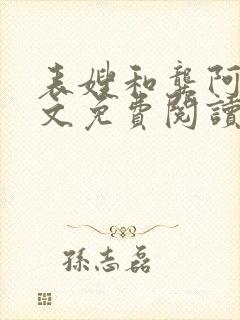 表嫂和龔阿
文免費閱讀
孫志磊